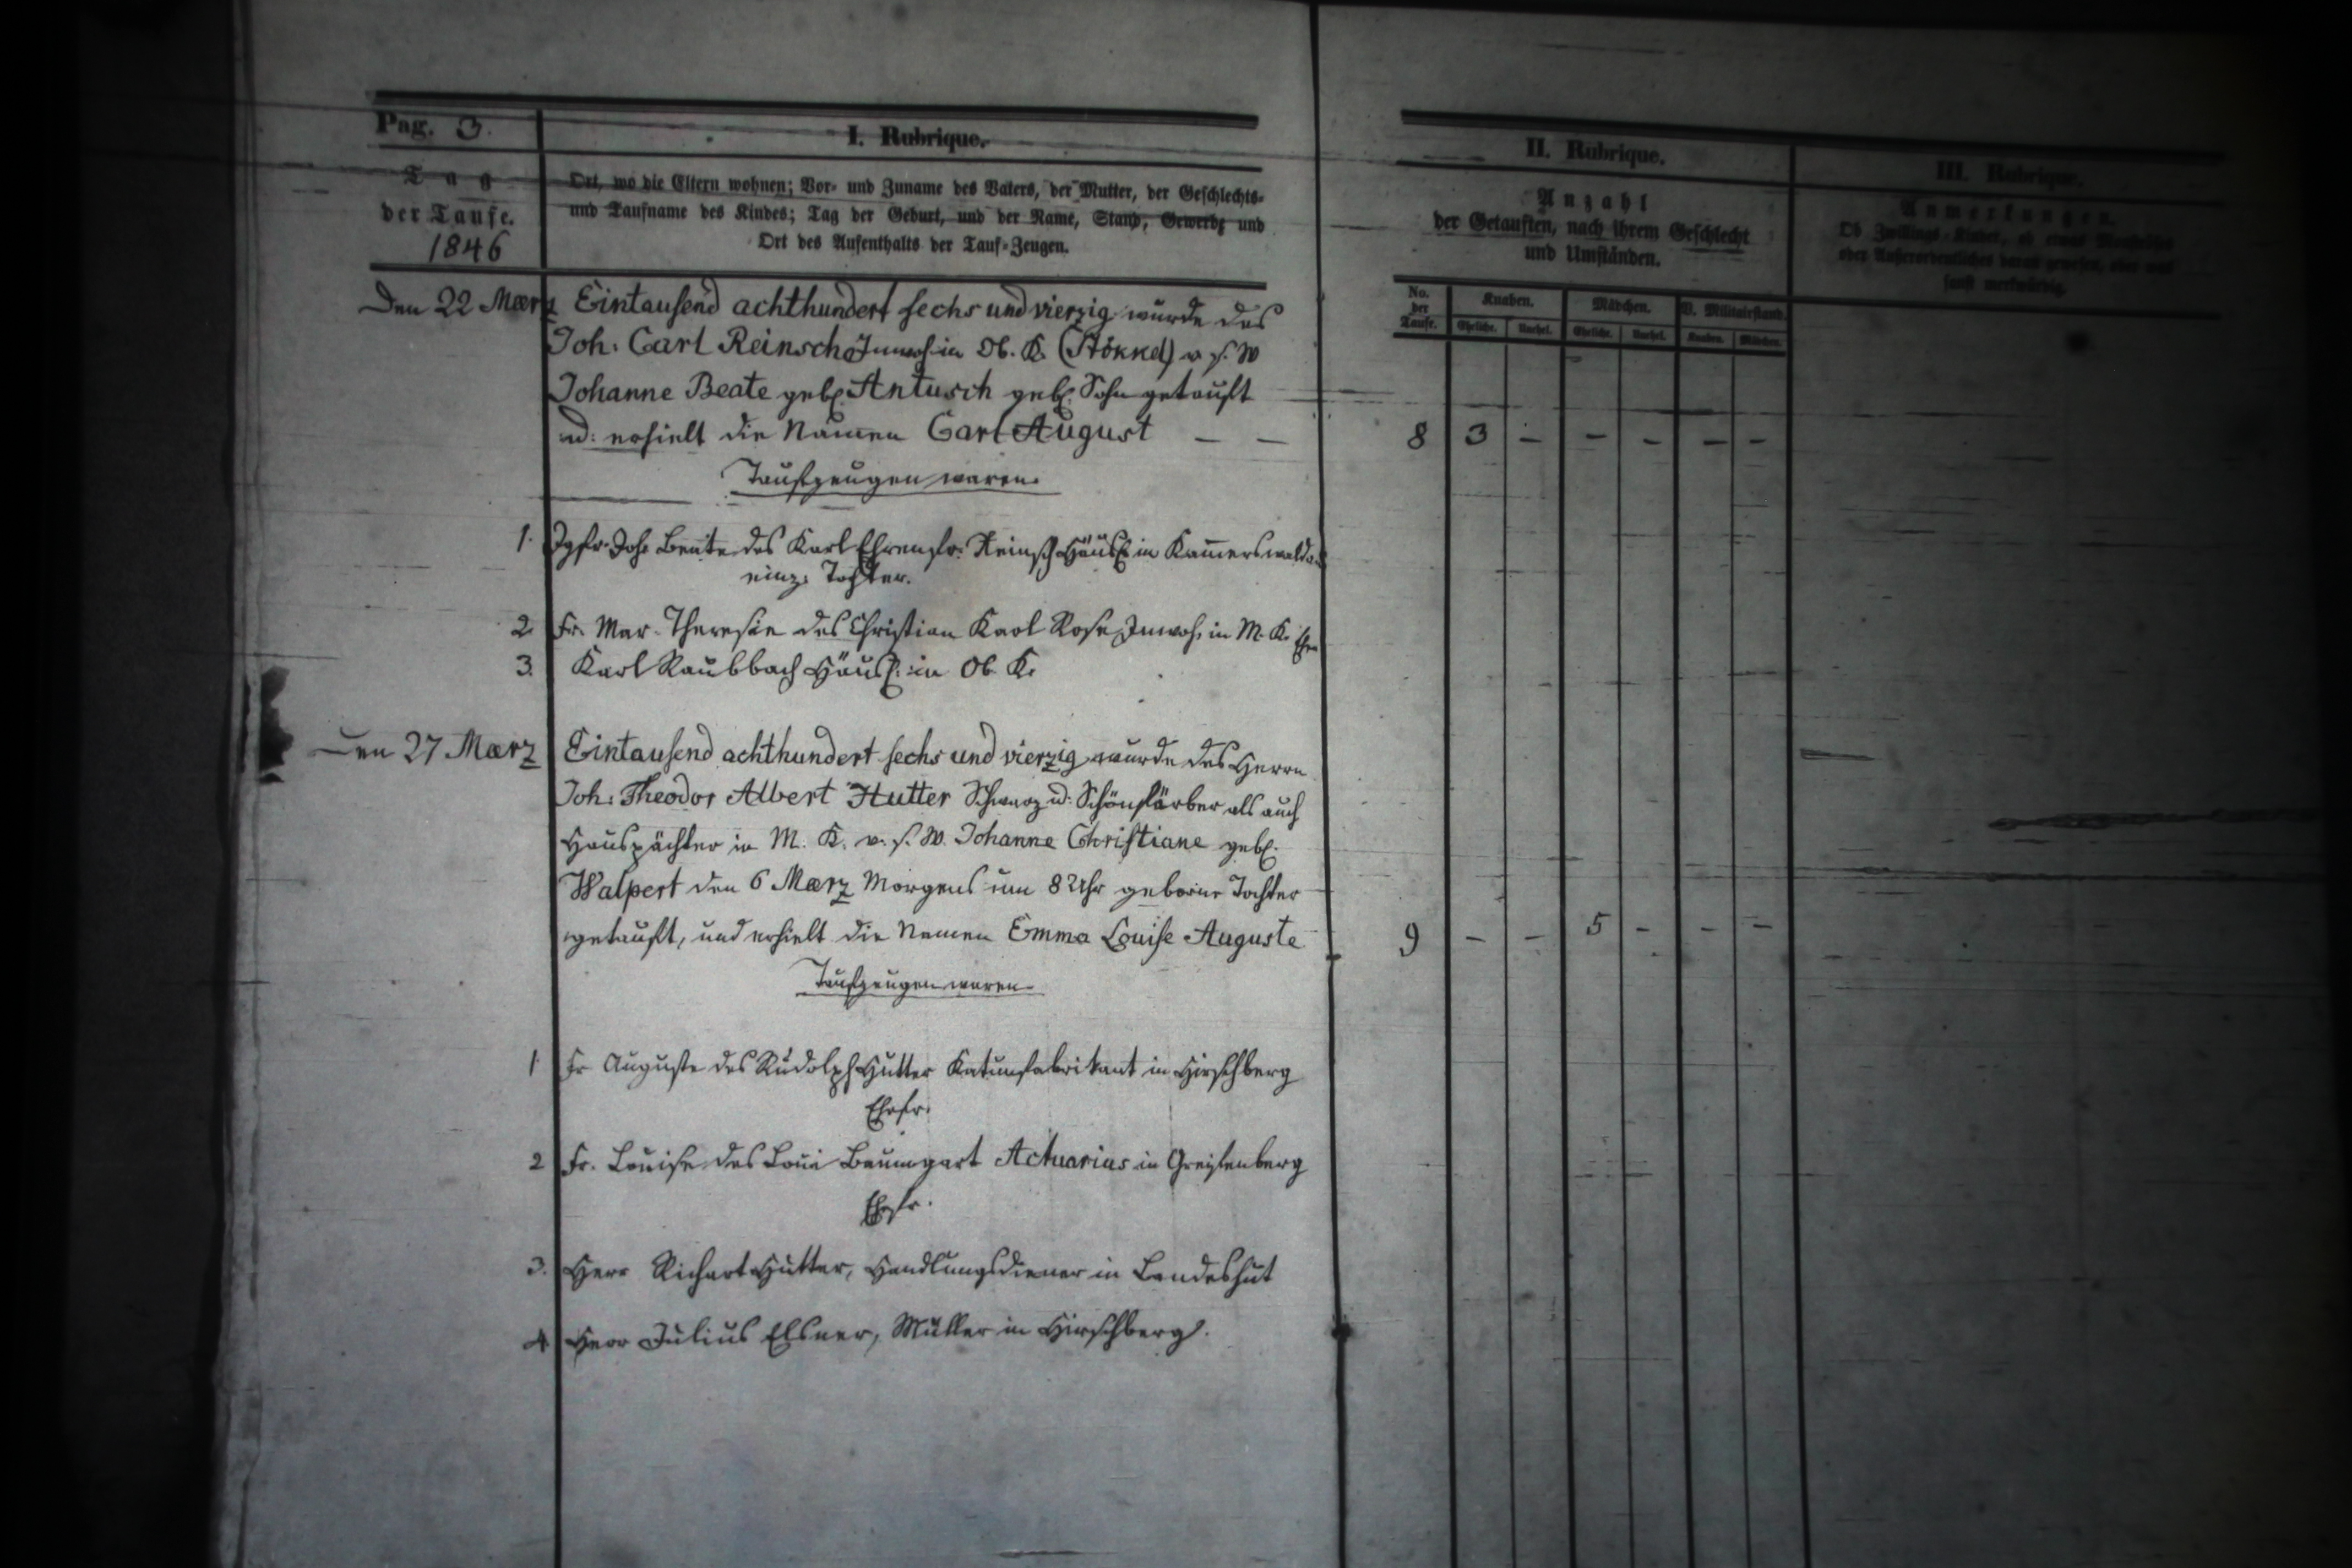 Pag. 3.
I. Rubrique.
II. Rubrique.
III. Rubrique.
Tag
der Taufe.
1846
Ort, wo die Eltern wohnen; Vor- und Zuname des Vaters, der Mutter, der Geschlechts-
und Taufname des Kindes; Tag der Geburt, und der Name, Stand, Gewerbe und
Ort des Aufenthalts der Tauf-Zeugen.
Anzahl
der Getauften, nach ihrem Geschlecht
und Umständen.
Anmerkungen.
Ob Zwillings-Kinder, ob etwas
oder Außerordentliches daran gewesen, oder was
sonst merkwürdig.
No. der Taufe.
Knaben.
Mädchen.
V. Militairstand.
Ehelich. Unehel. Ehelich. Unehel. Knaben. Mädchen.
Den 22 Maerz Eintausend achthundert sechs und vierzig wurde des
Joh: Carl Reinsch Inwoh. in Ob. K. (Stökkel) v. s. W
Johanne Beate geb. Antusch geb. Sohn getauft
ud: erhielt die Namen Carl August — —
8 3 - - - - -
Taufzeugen waren.
1. Jgfr. Joh. Beate des Karl Ehrenfr. Reinsch Häusl. in Kam̄erswaldau
einz. Tochter.
2. Fr. Mar. Theresie des Christian Karl Rose Inwoh. in M. K. Ehfr
3. Karl Raubbach Häusl. in Ob. K.
Den 27 Maerz Eintausend achthundert sechs und vierzig wurde des Herrn
Joh: Theodor Albert Hutter Schwarz ud: Schönfärber als auch
Hauspächter in M. K. v. s. W. Johanne Christiane geb.
Walpert den 6 Maerz Morgens um 8 Uhr geborne Tochter
getauft, und erhielt die Namen Emma Louise Auguste
9 - - 5 - - -
Taufzeugen waren.
1. Fr Auguste des Rudolph Hutter Katunfabrikant in Hirschberg
Ehefr.
2 Fr. Louise des Loui Baumgart Actuarius in Greifenberg
Ehefr.
3. Herr Richart Hutter, Handlungsdiener in Landeshut
4. Herr Julius Elsner, Müller in Hirschberg.